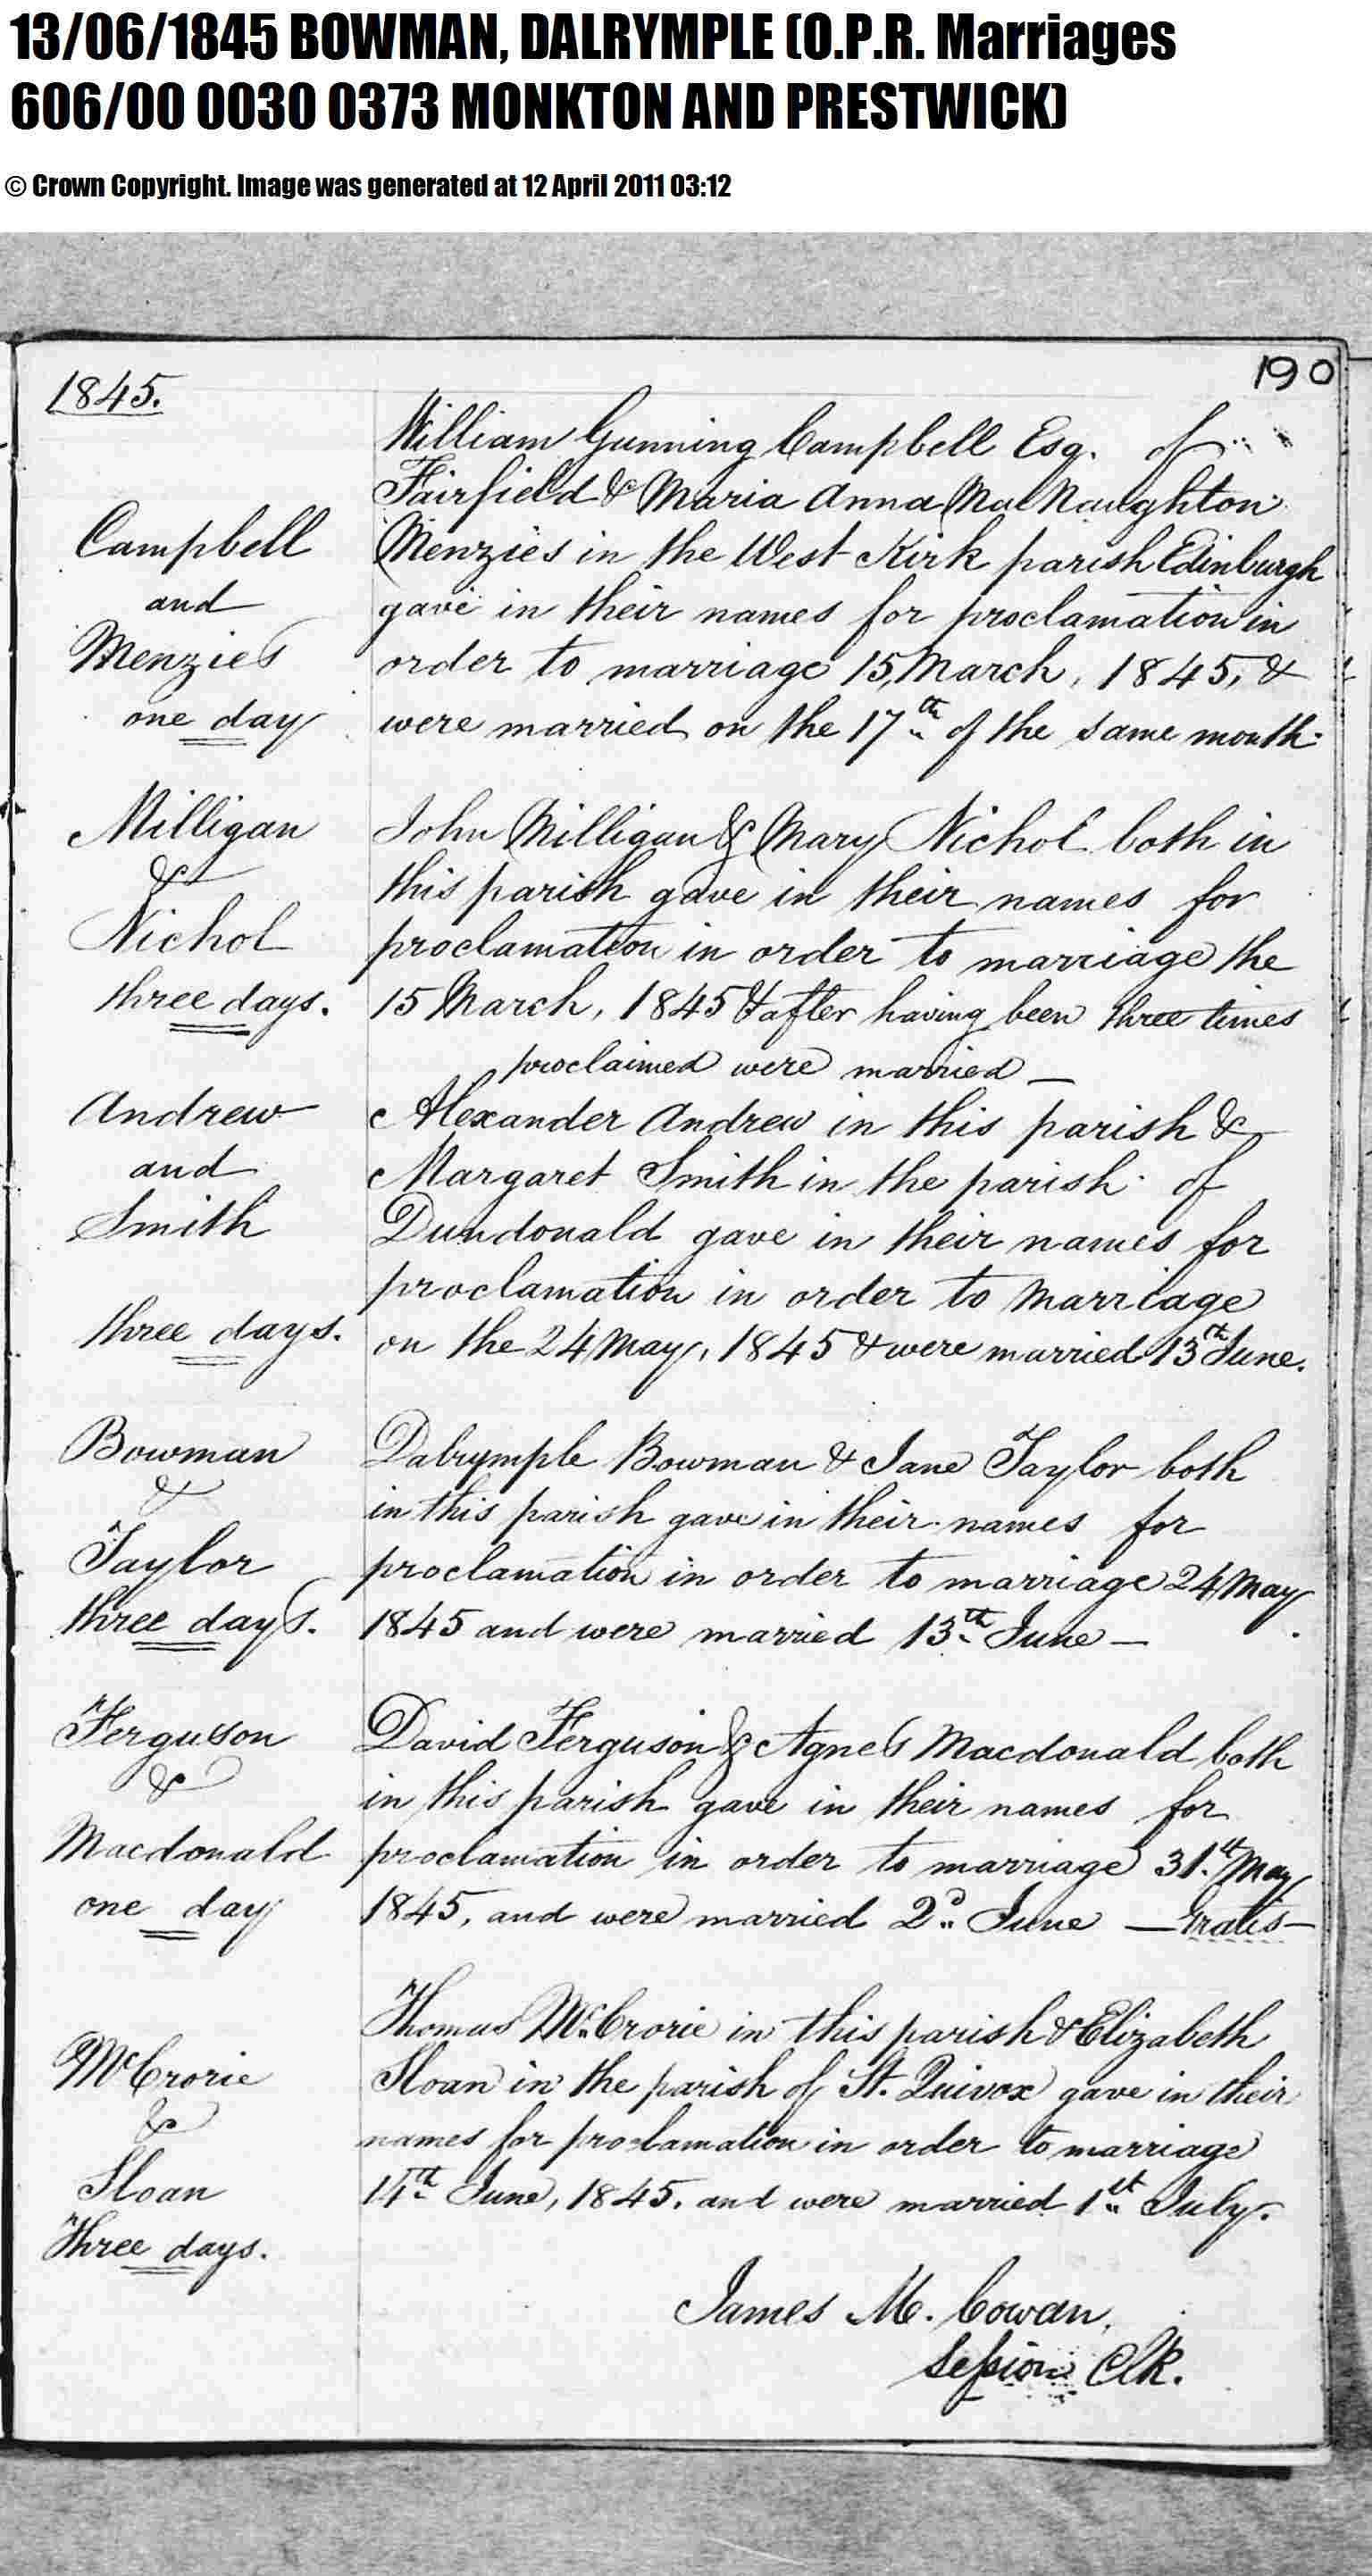 13/06/1845 BOWMAN, DALRYMPLE (O.P.R. Marriages
606/00 0030 0373 MONKTON AND PRESTWICK)
© Crown Copyright. Image was generated at 12 April 2011 03:12
190
1845.
Campbell
and
Menzies
one day
William Gunning Campbell Esq. of
Fairfield & Maria Anna MacNaughton
Menzies in the West Kirk parish Edinburgh
gave in their names for proclamation in
order to marriage 15, March, 1845, &
were married on the 17th of the same month.
Milligan
&
Nichol
three days.
John Milligan & Mary Nichol both in
this parish gave in their names for
proclamation in order to marriage the
15 March, 1845 & after having been three times
proclaimed were married —
Andrew
and
Smith
three days.
Alexander Andrew in this parish &
Margaret Smith in the parish of
Dundonald gave in their names for
proclamation in order to marriage
on the 24 May, 1845 & were married 13th June.
Bowman
&
Taylor
three days.
Dalrymple Bowman & Jane Taylor both
in this parish gave in their names for
proclamation in order to marriage 24 May
1845 and were married 13th June —
Ferguson
&
Macdonald
one day
David Ferguson & Agnes Macdonald both
in this parish gave in their names for
proclamation in order to marriage 31st May
1845, and were married 2d June — Gratis —
McCrorie
&
Sloan
Three days.
Thomas McCrorie in this parish & Elizabeth
Sloan in the parish of St. Quivox gave in their
names for proclamation in order to marriage
14th June, 1845. and were married 1st July.
James M. Cowan,
Session Clk.